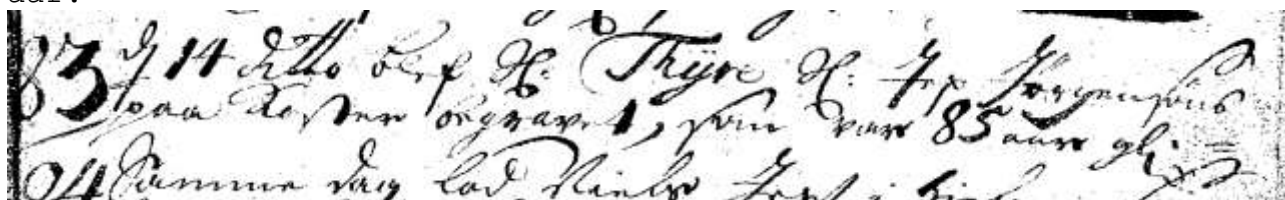 aar.
83 d 14 ditto blef Sl. Thÿre Sl. Jep Jørgensøns
paa Koster begravet, som var 85 aar gl:
94 Samme dag lod Niels